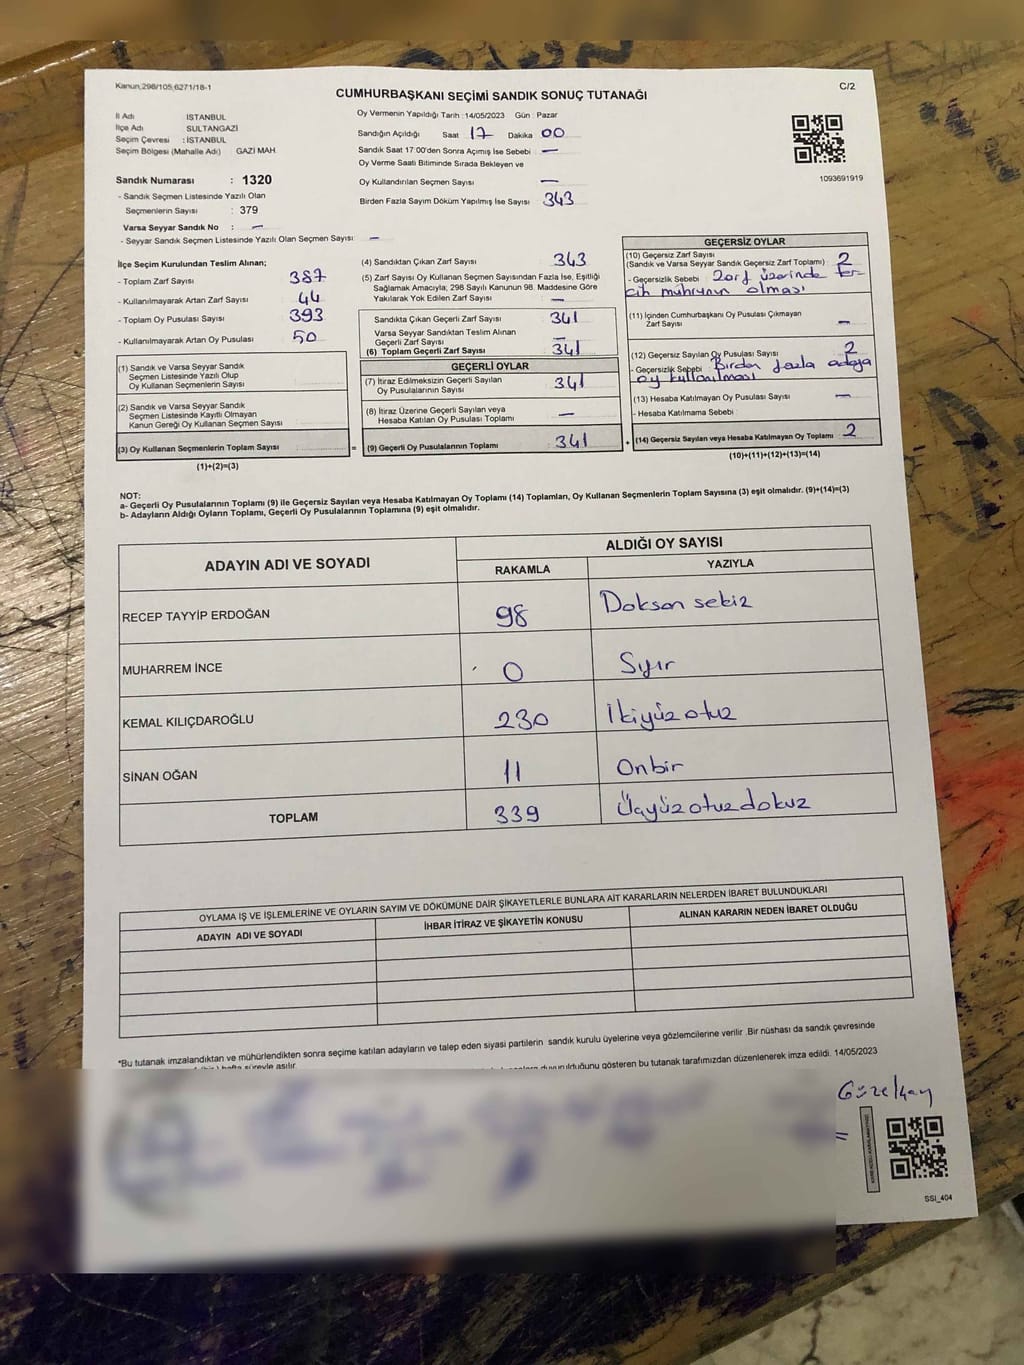 Kanun;298/105,6271/18-1
C/2
CUMHURBAŞKANI SEÇİMİ SANDIK SONUÇ TUTANAĞI
İl Adı İSTANBUL
İlçe Adı SULTANGAZİ
Seçim Çevresi : İSTANBUL
Seçim Bölgesi (Mahalle Adı) GAZİ MAH.
Oy Vermenin Yapıldığı Tarih :14/05/2023 Gün : Pazar
Sandığın Açıldığı Saat 17 Dakika 00
Sandık Saat 17:00'den Sonra Açımış İse Sebebi : —
Oy Verme Saati Bitiminde Sırada Bekleyen ve
Oy Kullandırılan Seçmen Sayısı —
Birden Fazla Sayım Döküm Yapılmış İse Sayısı : 343
1093691919
Sandık Numarası : 1320
- Sandık Seçmen Listesinde Yazılı Olan
Seçmenlerin Sayısı : 379
Varsa Seyyar Sandık No : —
- Seyyar Sandık Seçmen Listesinde Yazılı Olan Seçmen Sayısı: —
İlçe Seçim Kurulundan Teslim Alınan;
- Toplam Zarf Sayısı 387
- Kullanılmayarak Artan Zarf Sayısı : 44
- Toplam Oy Pusulası Sayısı : 393
- Kullanılmayarak Artan Oy Pusulası : 50
(1) Sandık ve Varsa Seyyar Sandık
Seçmen Listesinde Yazılı Olup
Oy Kullanan Seçmenlerin Sayısı
(2) Sandık ve Varsa Seyyar Sandık
Seçmen Listesinde Kayıtlı Olmayan
Kanun Gereği Oy Kullanan Seçmen Sayısı
(3) Oy Kullanan Seçmenlerin Toplam Sayısı =
(1)+(2)=(3)
(4) Sandıktan Çıkan Zarf Sayısı : 343
(5) Zarf Sayısı Oy Kullanan Seçmen Sayısından Fazla İse, Eşitliği
Sağlamak Amacıyla; 298 Sayılı Kanunun 98. Maddesine Göre
Yakılarak Yok Edilen Zarf Sayısı : —
Sandıkta Çıkan Geçerli Zarf Sayısı : 341
Varsa Seyyar Sandıktan Teslim Alınan
Geçerli Zarf Sayısı : —
(6) Toplam Geçerli Zarf Sayısı : 341
GEÇERLİ OYLAR
(7) İtiraz Edilmeksizin Geçerli Sayılan
Oy Pusulalarının Sayısı : 341
(8) İtiraz Üzerine Geçerli Sayılan veya
Hesaba Katılan Oy Pusulası Toplamı : —
(9) Geçerli Oy Pusulalarının Toplamı : 341 +
GEÇERSİZ OYLAR
(10) Geçersiz Zarf Sayısı
(Sandık ve Varsa Seyyar Sandık Geçersiz Zarf Toplamı) : 2
- Geçersizlik Sebebi : Zarf üzerinde ter-
cih mührünün olması
(11) İçinden Cumhurbaşkanı Oy Pusulası Çıkmayan
Zarf Sayısı : —
(12) Geçersiz Sayılan Oy Pusulası Sayısı : 2
- Geçersizlik Sebebi : Birden fazla adaya
oy kullanılması
(13) Hesaba Katılmayan Oy Pusulası Sayısı : —
- Hesaba Katılmama Sebebi :
(14) Geçersiz Sayılan veya Hesaba Katılmayan Oy Toplamı : 2
(10)+(11)+(12)+(13)=(14)
NOT:
a- Geçerli Oy Pusulalarının Toplamı (9) ile Geçersiz Sayılan veya Hesaba Katılmayan Oy Toplamı (14) Toplamları, Oy Kullanan Seçmenlerin Toplam Sayısına (3) eşit olmalıdır. (9)+(14)=(3)
b- Adayların Aldığı Oyların Toplamı, Geçerli Oy Pusulalarının Toplamına (9) eşit olmalıdır.
ADAYIN ADI VE SOYADI
ALDIĞI OY SAYISI
RAKAMLA YAZIYLA
RECEP TAYYİP ERDOĞAN 98 Doksan sekiz
MUHARREM İNCE 0 Sıfır
KEMAL KILIÇDAROĞLU 230 İkiyüz otuz
SİNAN OĞAN 11 Onbir
TOPLAM 339 Üçyüz otuz dokuz
OYLAMA İŞ VE İŞLEMLERİNE VE OYLARIN SAYIM VE DÖKÜMÜNE DAİR ŞİKAYETLERLE BUNLARA AİT KARARLARIN NELERDEN İBARET BULUNDUKLARI
ADAYIN ADI VE SOYADI İHBAR İTİRAZ VE ŞİKAYETİN KONUSU ALINAN KARARIN NEDEN İBARET OLDUĞU
*Bu tutanak imzalandıktan ve mühürlendikten sonra seçime katılan adayların ve talep eden siyasi partilerin sandık kurulu üyelerine veya gözlemcilerine verilir .Bir nüshası da sandık çevresinde
hafta süreyle asılır.
duyurulduğunu gösteren bu tutanak tarafımızdan düzenlenerek imza edildi. 14/05/2023
SSI_404